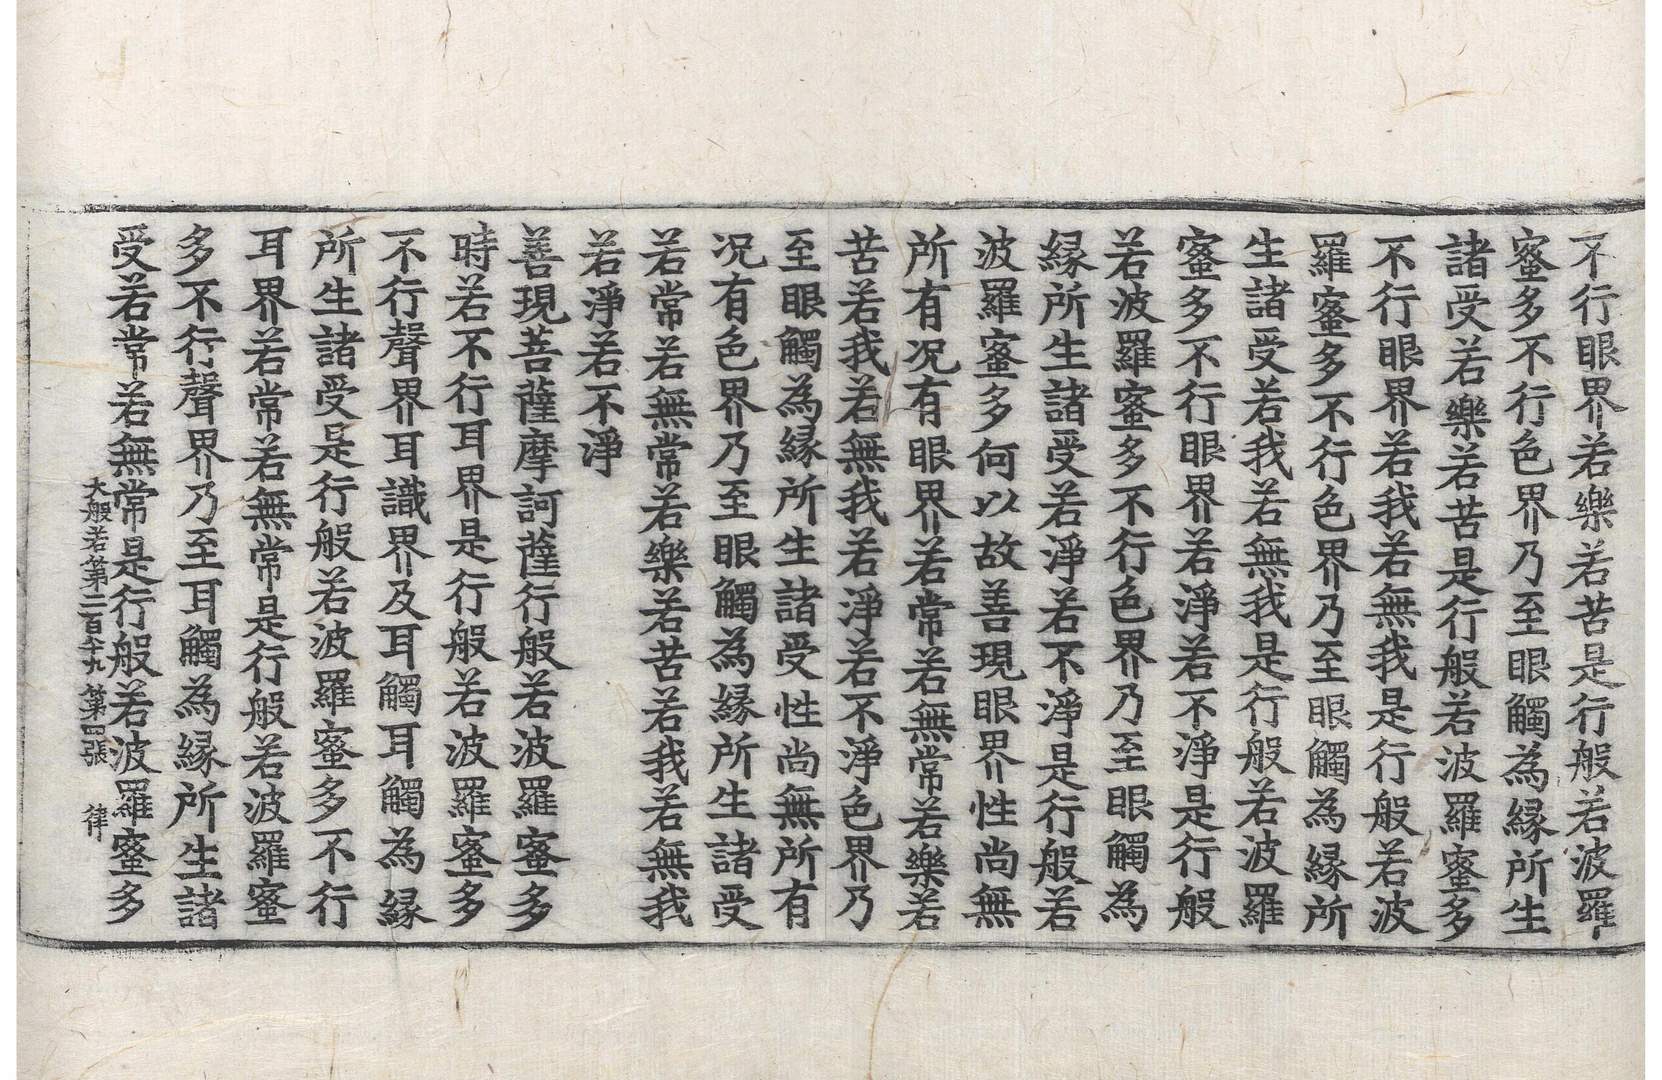 不行眼界若樂若苦是行般若波羅
蜜多不行色界乃至眼觸為縁所生
諸受若樂若苦是行般若波羅蜜多
不行眼界若我若無我是行般若波
羅蜜多不行色界乃至眼觸為縁所
生諸受若我若無我是行般若波羅
蜜多不行眼界若淨若不淨是行般
若波羅蜜多不行色界乃至眼觸為
縁所生諸受若淨若不淨是行般若
波羅蜜多何以故善現眼界性尚無
所有况有眼界若常若無常若樂若
苦若我若無我若淨若不淨色界乃
至眼觸為縁所生諸受性尚無所有
况有色界乃至眼觸為縁所生諸受
若常若無常若樂若苦若我若無我
若淨若不淨
善現菩薩摩訶薩行般若波羅蜜多
時若不行耳界是行般若波羅蜜多
不行聲界耳識界及耳觸耳觸為縁
所生諸受是行般若波羅蜜多不行
耳界若常若無常是行般若波羅蜜
多不行聲界乃至耳觸為縁所生諸
受若常若無常是行般若波羅蜜多
大般若第二百八十九 第四張 律